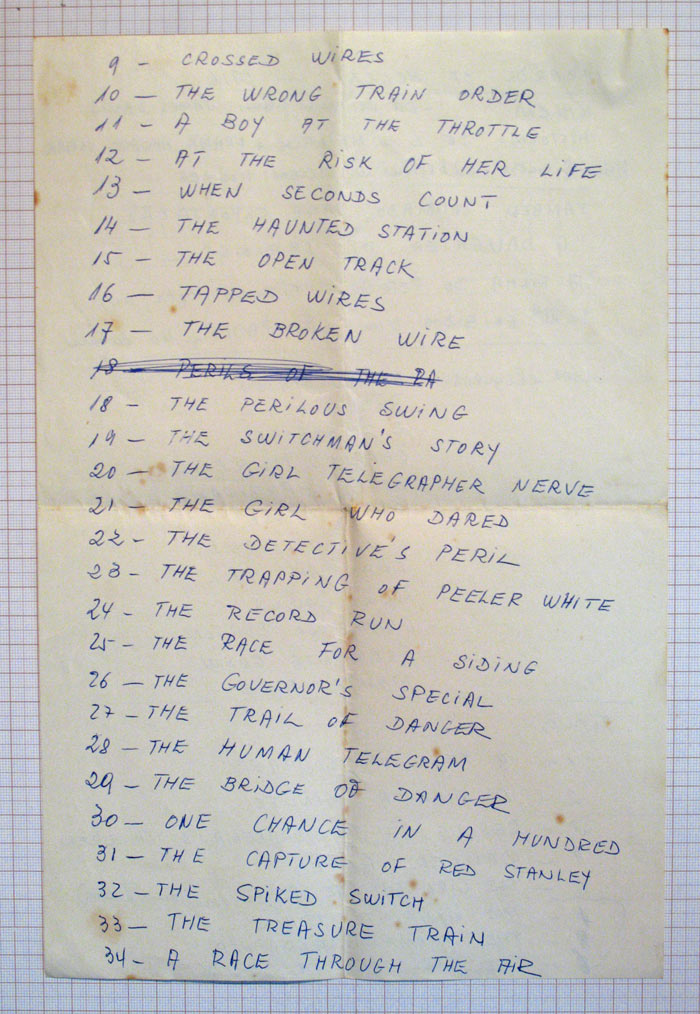 9 - CROSSED WIRES
10 - THE WRONG TRAIN ORDER
11 - A BOY AT THE THROTTLE
12 - AT THE RISK OF HER LIFE
13 - WHEN SECONDS COUNT
14 - THE HAUNTED STATION
15 - THE OPEN TRACK
16 - TAPPED WIRES
17 - THE BROKEN WIRE
18 - PERILS OF THE RA
18 - THE PERILOUS SWING
19 - THE SWITCHMAN'S STORY
20 - THE GIRL TELEGRAPHER NERVE
21 - THE GIRL WHO DARED
22 - THE DETECTIVE'S PERIL
23 - THE TRAPPING OF PEELER WHITE
24 - THE RECORD RUN
25 - THE RACE FOR A SIDING
26 - THE GOVERNOR'S SPECIAL
27 - THE TRAIL OF DANGER
28 - THE HUMAN TELEGRAM
29 - THE BRIDGE OF DANGER
30 - ONE CHANCE IN A HUNDRED
31 - THE CAPTURE OF RED STANLEY
32 - THE SPIKED SWITCH
33 - THE TREASURE TRAIN
34 - A RACE THROUGH THE AIR